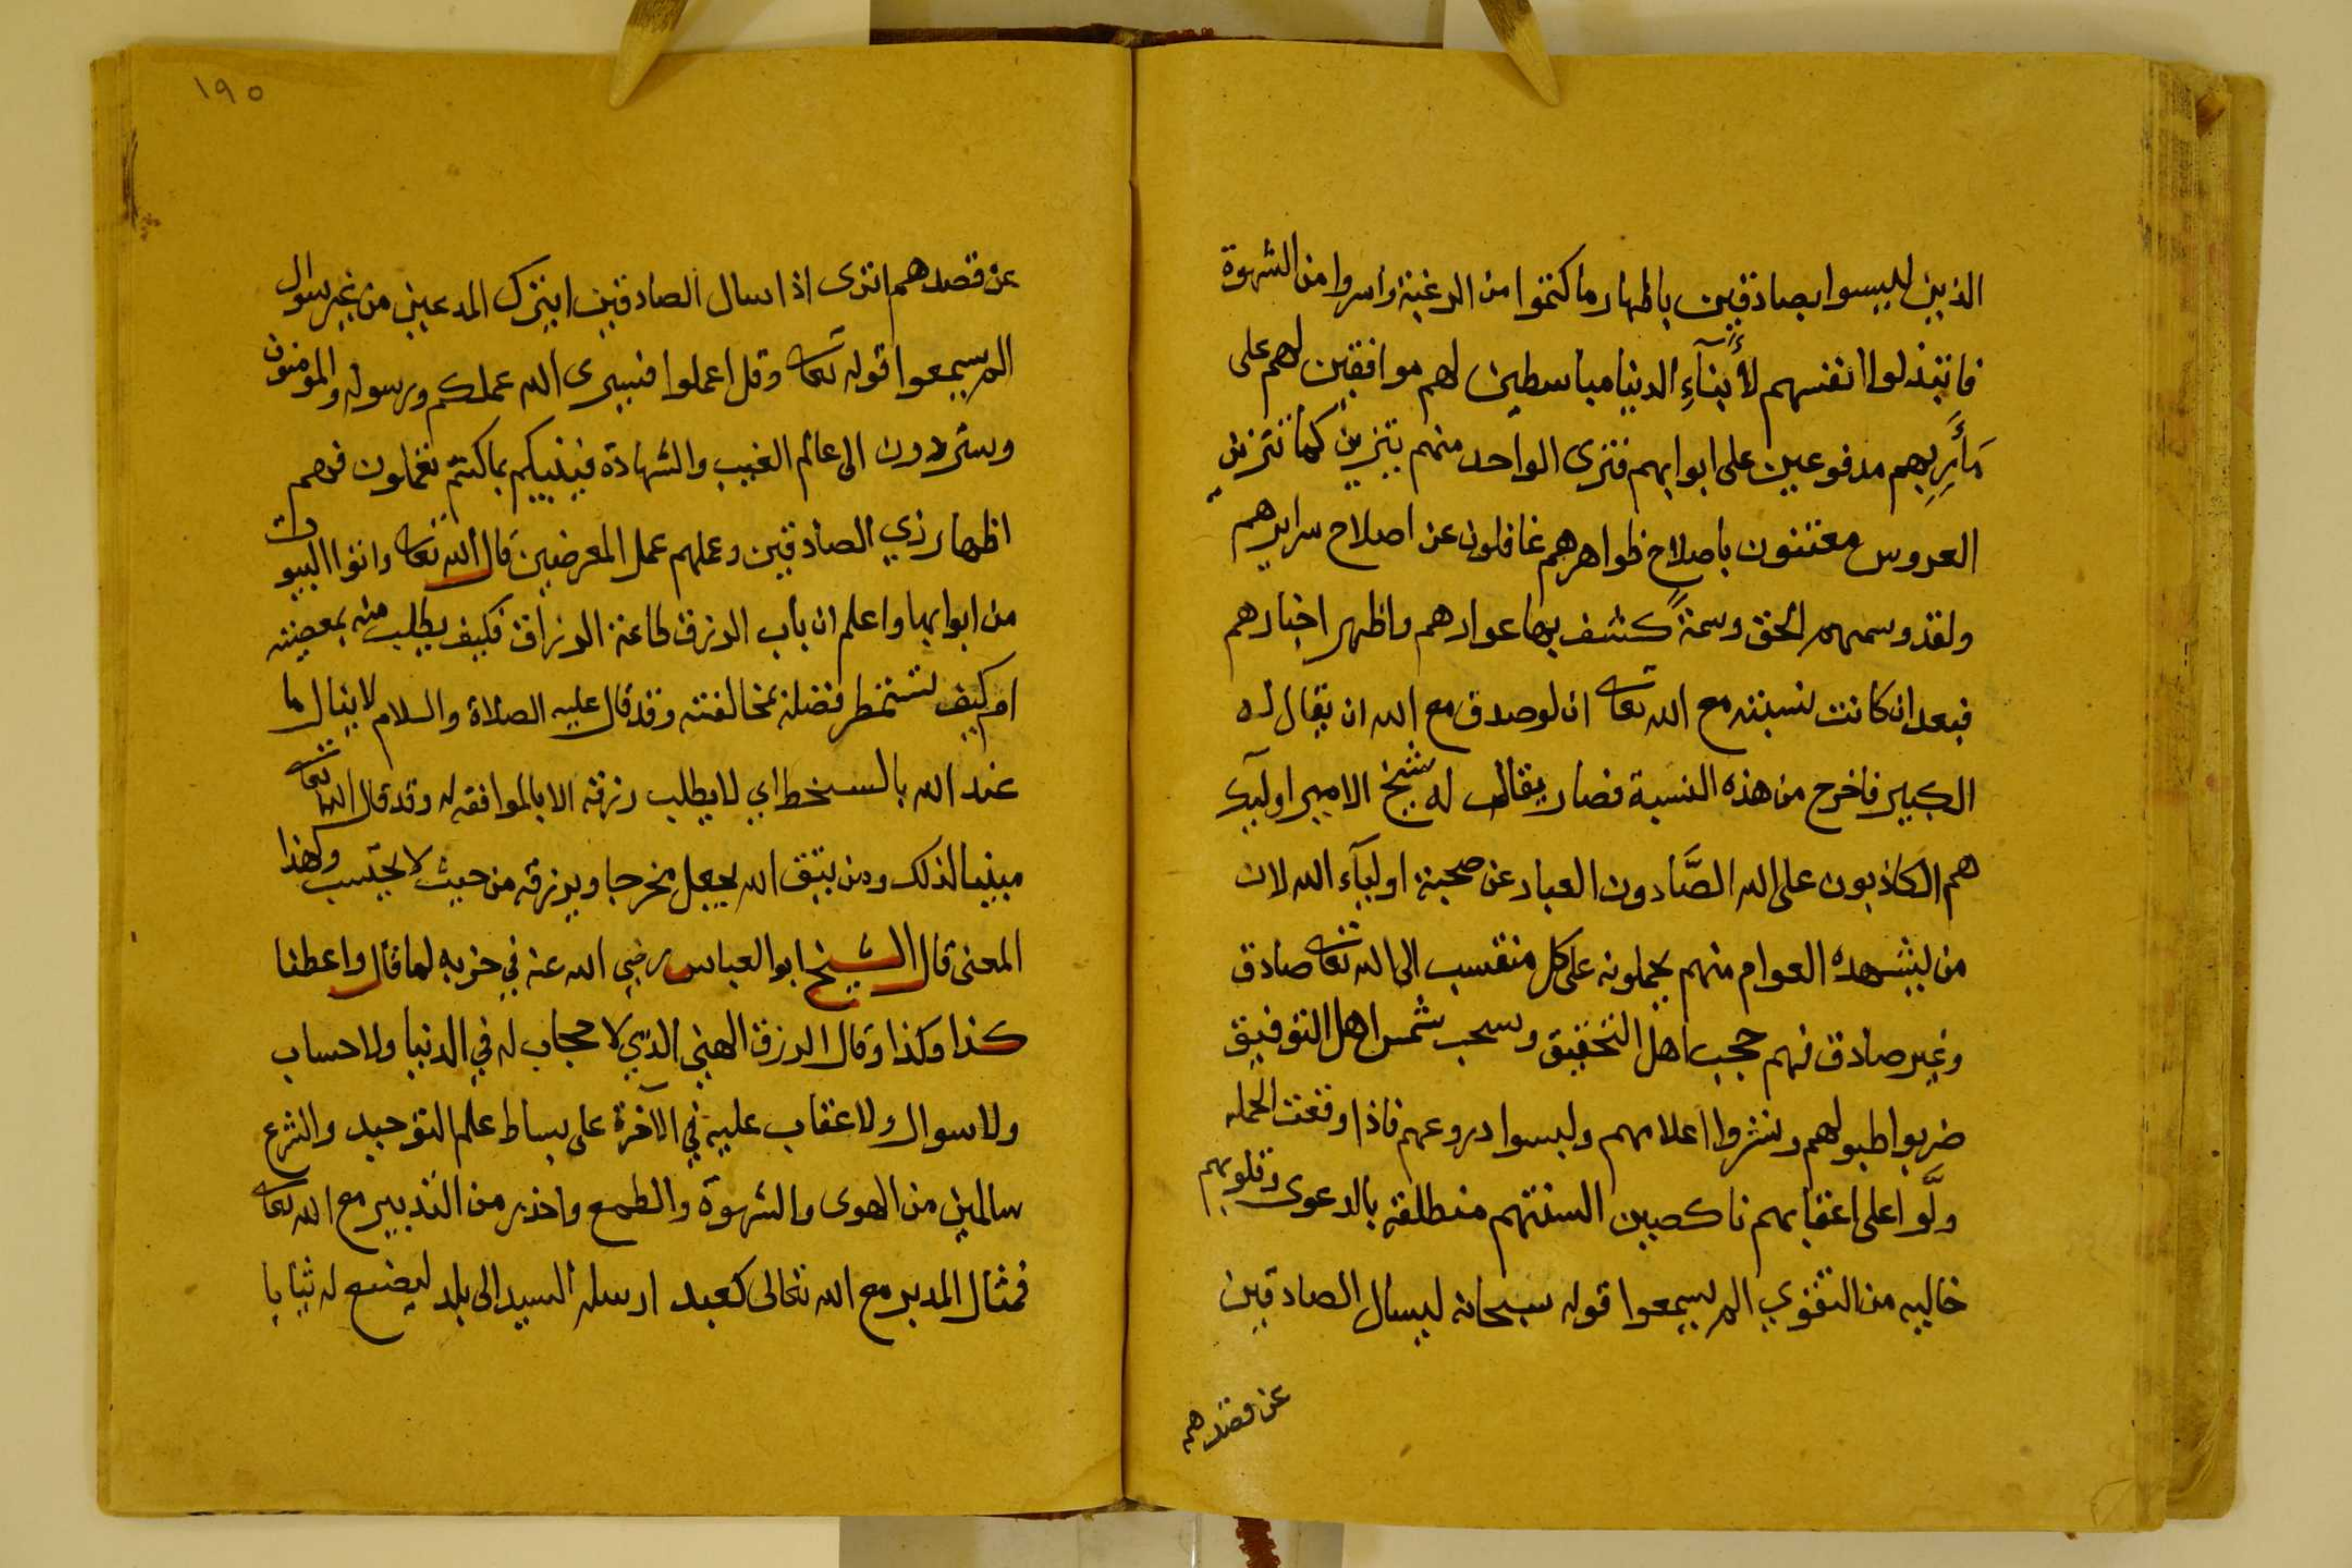 الذين ليسوا بصادقين باظهار ما كتموا من الرغبة واسروا من الشهوة
فابتذلوا انفسهم لأبنآءِ الدنيا مباسطين لهم موافقين لهم على
مَأَرِبِهم مدفوعين على ابوابهم فترى الواحد منهم يتزين كما تتزين
العروس معتنون باصلاح ظواهرهم غافلون عن اصلاح سرايرهم
ولقد وسمهم الحق وسمةً كشف بها عوارهم واظهر اخبارهم
فبعد ان كانت نسبته مع الله تعالى ان لو صدق مع الله ان يقال له
الكبير فاخرج من هذه النسبة فصار يقال له شيخ الامير اوليك
هم الكاذبون على الله الصَّادون العباد عن صحبة اوليآء الله لان
من يشهده العوام منهم يحملونه على كل منتسب الى الله تعالى صادق
وغير صادق فهم حجب اهل التحقيق وسحب شمس اهل التوفيق
ضربوا طبولهم ونشروا اعلامهم ولبسوا دروعهم فاذا وقعت الحمله
ولَّوا على اعقابهم ناكصين السنتهم منطلقة بالدعوى وقلوبهم
خاليه من التقوي الم يسمعوا قوله سبحانه ليسال الصادقين
عن صدقهم
١٩٥
عن صدقهم اترى اذا سال الصادقين ايترك المدعين من غير سوال
الم يسمعوا قوله تعالى وقل اعملوا فسيرى الله عملكم ورسوله والمومنون
وستردون الى عالم الغيب والشهادة فينبيكم بما كنتم تعملون فهم
اظهار زي الصادقين وعملهم عمل المعرضين قال الله تعالى واتوا البيوت
من ابوابها واعلم ان باب الرزق طاعة الرزاق فكيف يطلب منه بمعصيته
ام كيف تستمطر فضله بمخالفته وقد قال عليه الصلاة والسلام لا ينال ما
عند الله بالسخط اي لا يطلب رزقه الا بالموافقه له وقد قال الله تعالى
مبينا لذلك ومن يتق الله يجعل مخرجا ويرزقه من حيث لا يحتسب ولهذا
المعنى قال الشيخ ابو العباس رضي الله عنه في حزبه لما قال واعطنا
كذا وكذا وقال الرزق الهني الذي لا حجاب له في الدنيا ولا حساب
ولا سوال ولا عقاب عليه في الآخرة على بساط علم التوحيد والشرع
سالمين من الهوى والشهوة والطمع واحذر من التدبير مع الله تعالى
فمثال المدبر مع الله تعالى كعبد ارسله السيد الى بلد ليصنع له ثيابا